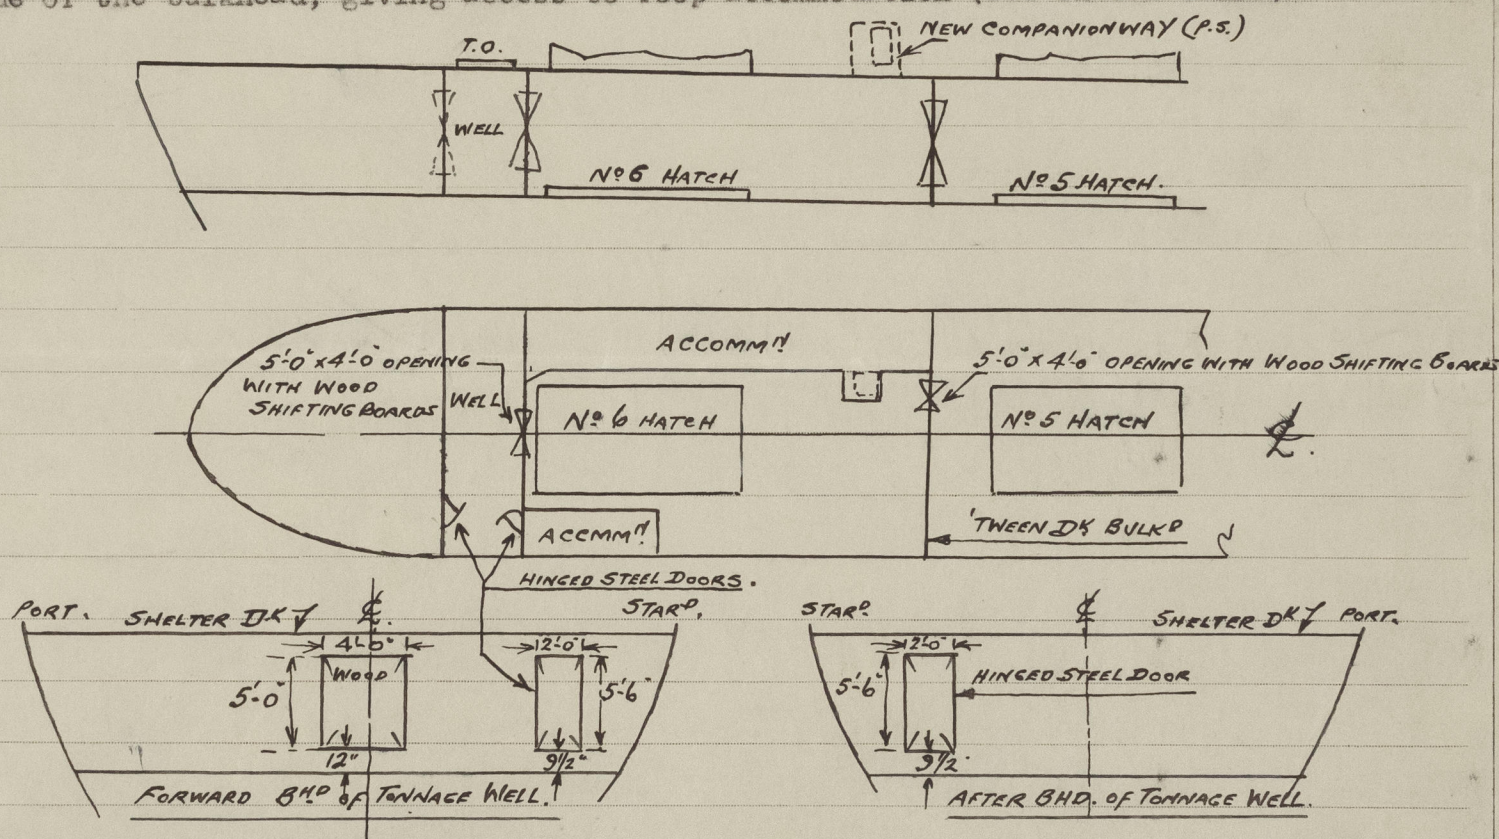 of the bulkhead, giving access to
NEW COMPANIONWAY (P.S.)
T.O.
WELL
Nº 6 HATCH
Nº 5 HATCH.
ACCOMMᴺ
5'-0" x 4'-0" OPENING
WITH WOOD
SHIFTING BOARDS
WELL
5'-0" x 4'-0" OPENING WITH WOOD SHIFTING BOARDS
Nº 6 HATCH
Nº 5 HATCH
℄.
ACCMMᴺ.
'TWEEN Dᴷ BULKᴰ
HINGED STEEL DOORS.
PORT.
SHELTER DK
℄.
STARᴰ.
4'-0"
2'-0"
WOOD
5'-0"
5'-6"
12"
9½"
FORWARD BHᴰ of TONNAGE WELL.
STARᴰ.
℄
SHELTER Dᴷ
PORT.
2'-0"
5'-6"
HINGED STEEL DOOR
9½"
AFTER BHD. OF TONNAGE WELL.